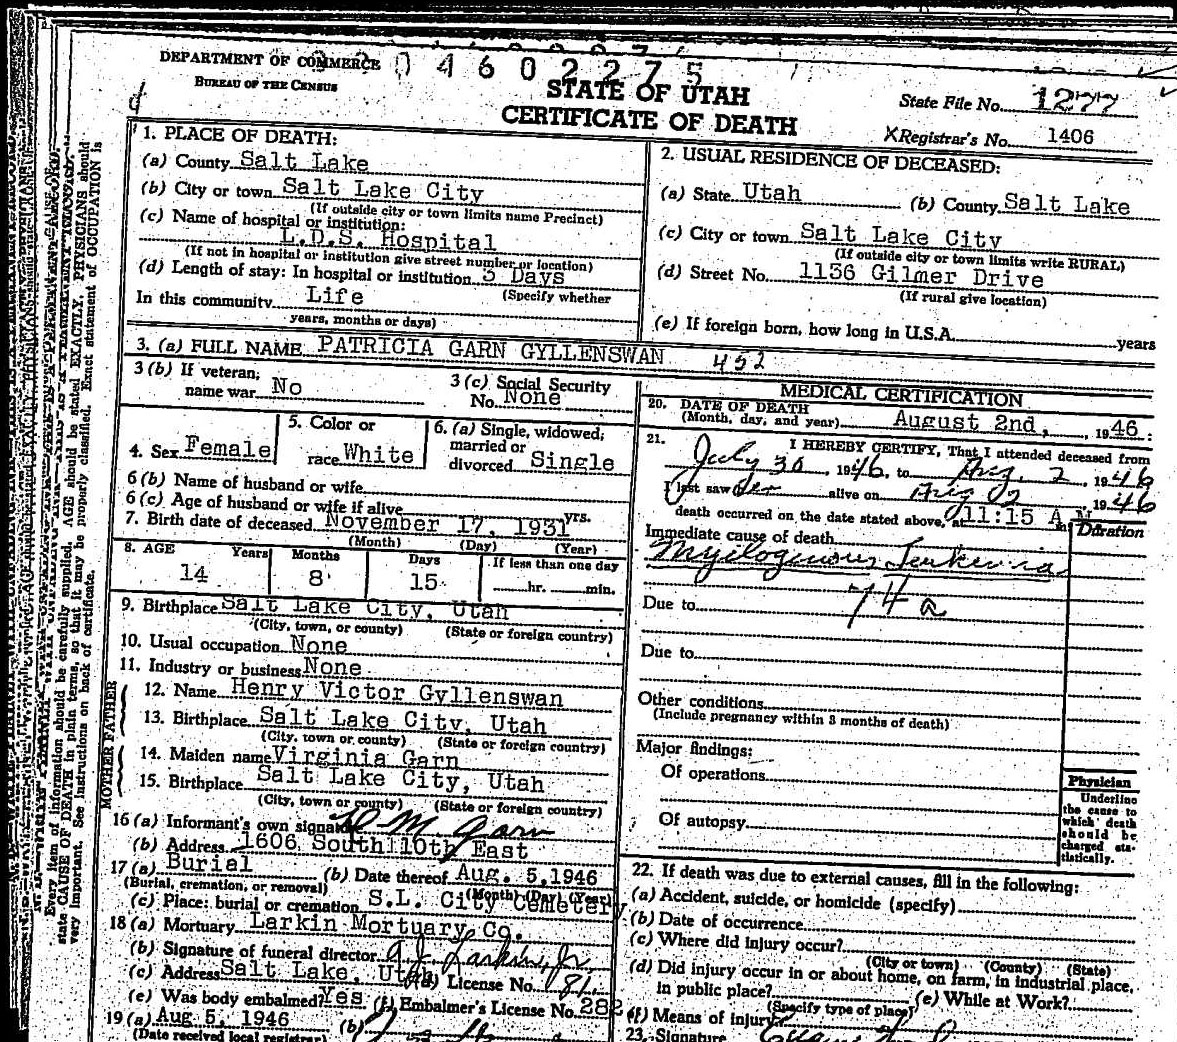 DEPARTMENT OF COMMERCE
BUREAU OF THE CENSUS
04602275
STATE OF UTAH
CERTIFICATE OF DEATH
State File No. 1277
XRegistrar's No. 1406
1. PLACE OF DEATH:
(a) County Salt Lake
(b) City or town Salt Lake City
(If outside city or town limits name Precinct)
(c) Name of hospital or institution:
L.D.S. Hospital
(If not in hospital or institution give street number or location)
(d) Length of stay: In hospital or institution 3 Days
(Specify whether
In this community Life
years, months or days)
2. USUAL RESIDENCE OF DECEASED:
(a) State Utah (b) County Salt Lake
(c) City or town Salt Lake City
(If outside city or town limits write RURAL)
(d) Street No. 1136 Gilmer Drive
(If rural give location)
(e) If foreign born, how long in U.S.A. years
3. (a) FULL NAME PATRICIA GARN GYLLENSWAN 452
3 (b) If veteran, name war No
3 (c) Social Security No. None
4. Sex Female
5. Color or race White
6. (a) Single, widowed, married or divorced Single
6 (b) Name of husband or wife
6 (c) Age of husband or wife if alive yrs.
7. Birth date of deceased November 17, 1931
(Month) (Day) (Year)
8. AGE Years Months Days If less than one day
14 8 15 hr. min.
9. Birthplace Salt Lake City, Utah
(City, town, or county) (State or foreign country)
10. Usual occupation None
11. Industry or business None
FATHER
12. Name Henry Victor Gyllenswan
13. Birthplace Salt Lake City, Utah
(City, town or county) (State or foreign country)
MOTHER
14. Maiden name Virginia Garn
15. Birthplace Salt Lake City, Utah
(City, town or county) (State or foreign country)
16 (a) Informant's own signature M Garn
(b) Address 1606 South 10th East
17 (a) Burial (b) Date thereof Aug. 5, 1946
(Burial, cremation, or removal) (Month) (Day) (Year)
(c) Place: burial or cremation S.L. City Cemetery
18 (a) Mortuary Larkin Mortuary Co.
(b) Signature of funeral director A.J. Larkin, Jr.
(c) Address Salt Lake, Utah (d) License No. 81
(e) Was body embalmed? Yes (f) Embalmer's License No. 282
19 (a) Aug 5, 1946 (b)
(Date received local registrar)
MEDICAL CERTIFICATION
20. DATE OF DEATH
(Month, day, and year) August 2nd, 1946:
21. I HEREBY CERTIFY, That I attended deceased from
July 30, 1946, to Aug. 2 1946
I last saw her alive on Aug 2 1946
death occurred on the date stated above, at 11:15 A M
Duration
Immediate cause of death
Myelogenous Leukemia
74a
Due to
Due to
Other conditions
(Include pregnancy within 3 months of death)
Major findings:
Of operations
Of autopsy
Physician
Underline the cause to which death should be charged statistically.
22. If death was due to external causes, fill in the following:
(a) Accident, suicide, or homicide (specify)
(b) Date of occurrence
(c) Where did injury occur?
(City or town) (County) (State)
(d) Did injury occur in or about home, on farm, in industrial place,
in public place? (e) While at Work?
(Specify type of place)
(f) Means of injury
23. Signature
Every item of information should be carefully supplied. AGE should be stated EXACTLY. PHYSICIANS should
state CAUSE OF DEATH in plain terms, so that it may be properly classified. Exact statement of OCCUPATION is
very important. See instructions on back of certificate.